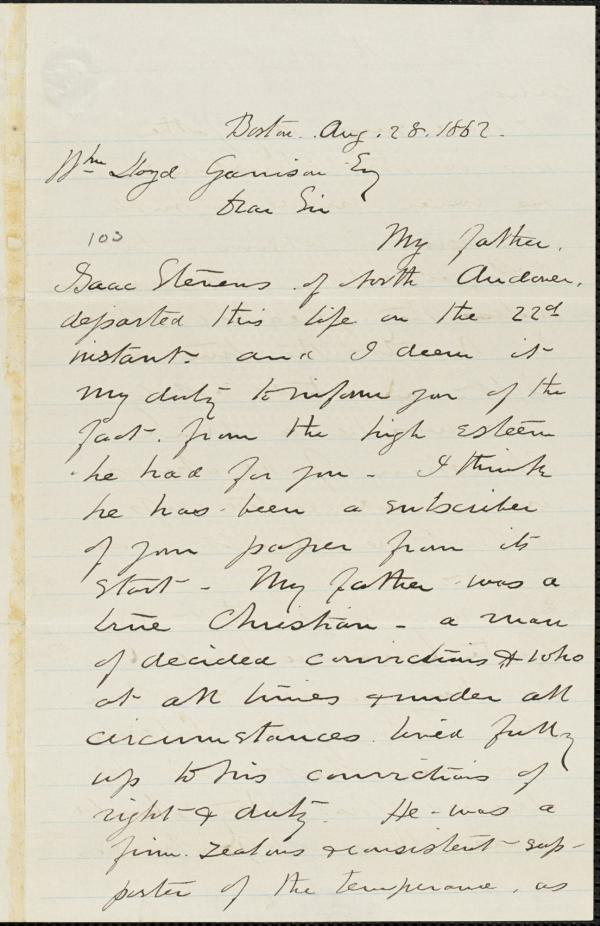 Boston. Aug. 28. 1862.
Wm Lloyd Garrison Esq
Dear Sir
103
My father,
Isaac Stevens of North Andover,
departed this life on the 22d
instant. and I deem it
my duty to inform you of the
fact. from the high esteem
he had for you - I think
he has been a subscriber
of your paper from its
start - My father was a
true Christian - a man
of decided convictions & who
at all times & under all
circumstances lived fully
up to his convictions of
right & duty. He was a
firm. zealous & consistent sup-
porter of the temperance, as